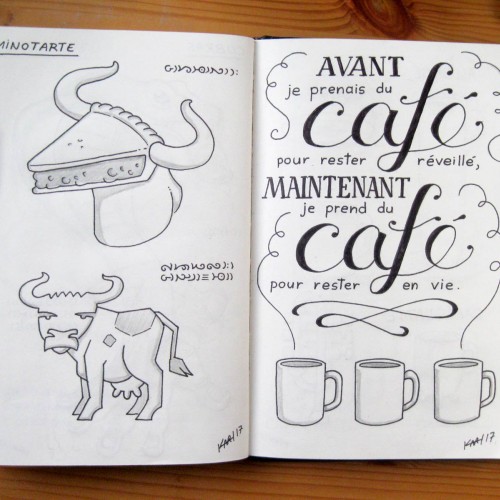 MINOTARTE
KAAY 17
AVANT
je prenais du
café
pour rester réveillé,
MAINTENANT
je prend du
café
pour rester en vie.
KAAY 17